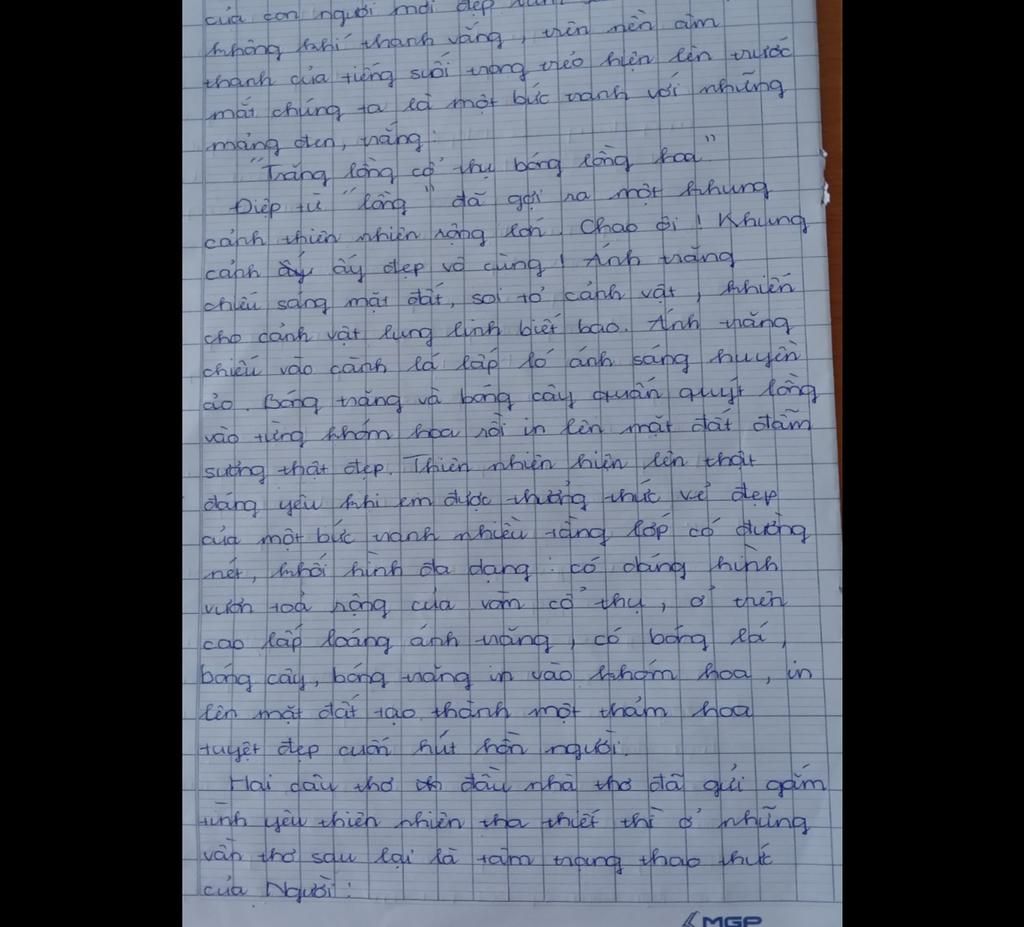 của con người mới đẹp
không khí thanh vắng, trên nền âm
thanh của tiếng suối trong trẻo hiện lên trước
mắt chúng ta là một bức tranh với những
mảng đen, trắng:
"Trăng lồng cổ thụ bóng lồng hoa"
Điệp từ "lồng" đã gợi ra một khung
cảnh thiên nhiên rộng lớn. Chao ôi! Khung
cảnh ấy đẹp vô cùng! Ánh trăng
chiếu sáng mặt đất, soi tỏ cảnh vật, khiến
cho cảnh vật lung linh biết bao. Ánh trăng
chiếu vào cành lá lấp ló ánh sáng huyền
ảo. Bóng trăng và bóng cây quấn quýt lồng
vào từng khóm hoa rồi in lên mặt đất đẫm
sương thật đẹp. Thiên nhiên hiện lên thật
đáng yêu khi em được thưởng thức vẻ đẹp
của một bức tranh nhiều tầng lớp có đường
nét, khối hình đa dạng: có dáng hình
vươn toả rộng của vòm cổ thụ, ở trên
cao lấp loáng ánh trăng, có bóng lá,
bóng cây, bóng trăng in vào khóm hoa, in
lên mặt đất tạo thành một thảm hoa
tuyệt đẹp cuốn hút hồn người.
Hai câu thơ đầu nhà thơ đã gửi gắm
tình yêu thiên nhiên tha thiết thì ở những
vần thơ sau lại là tâm trạng thao thức
của Người:
MGP